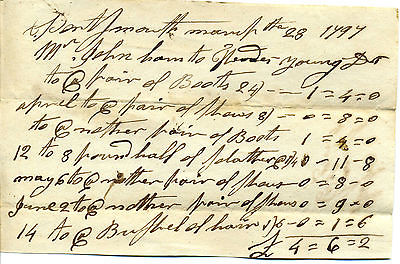 Portsmouth march the 28 1797
Mr. John ham to young Dr
to @ pair of Boots 24) -- 1=4=0
april to @ pair of shous 8) - 0=8=0
to @ nother pair of Boots 1=4=0
12 to 8 pound half of 1/4 0-11-8
may 6 to @ nother pair of shous 0=8-0
June 2 to @ nother pair of shous 0=9=0
14 to @ Bushel of hair 1/6-0=1=6
£ 4=6=2